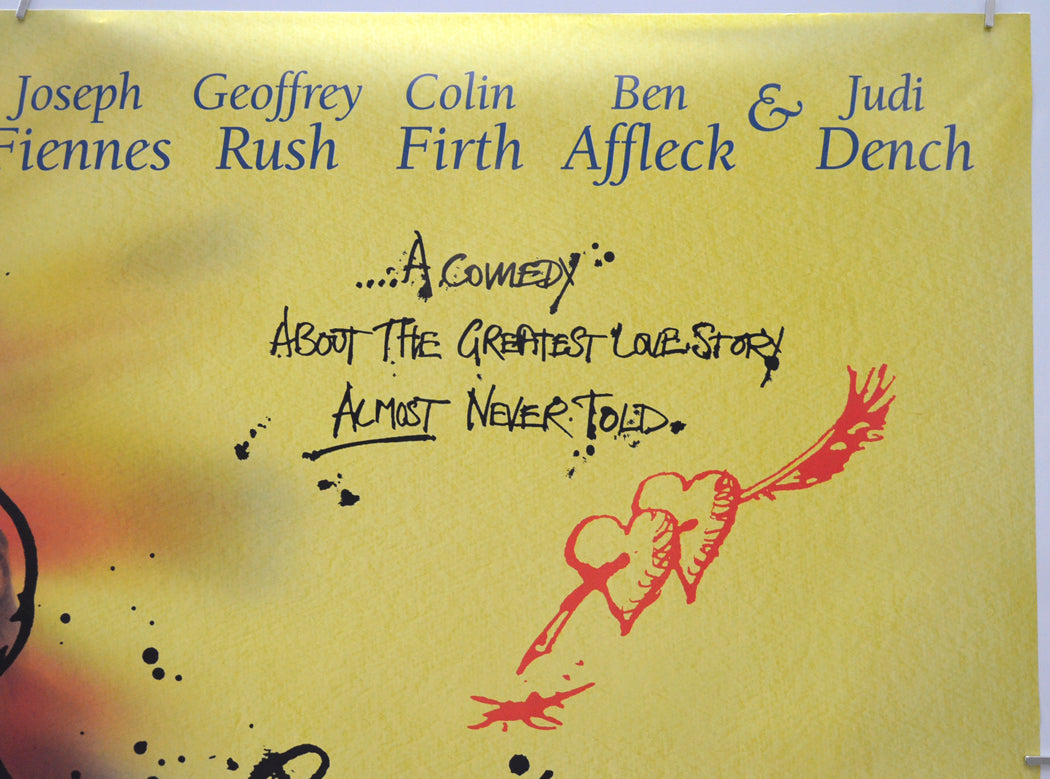 Joseph Geoffrey Colin Ben & Judi
Fiennes Rush Firth Affleck Dench
....A COMEDY
ABOUT THE GREATEST LOVE STORY
ALMOST NEVER TOLD.